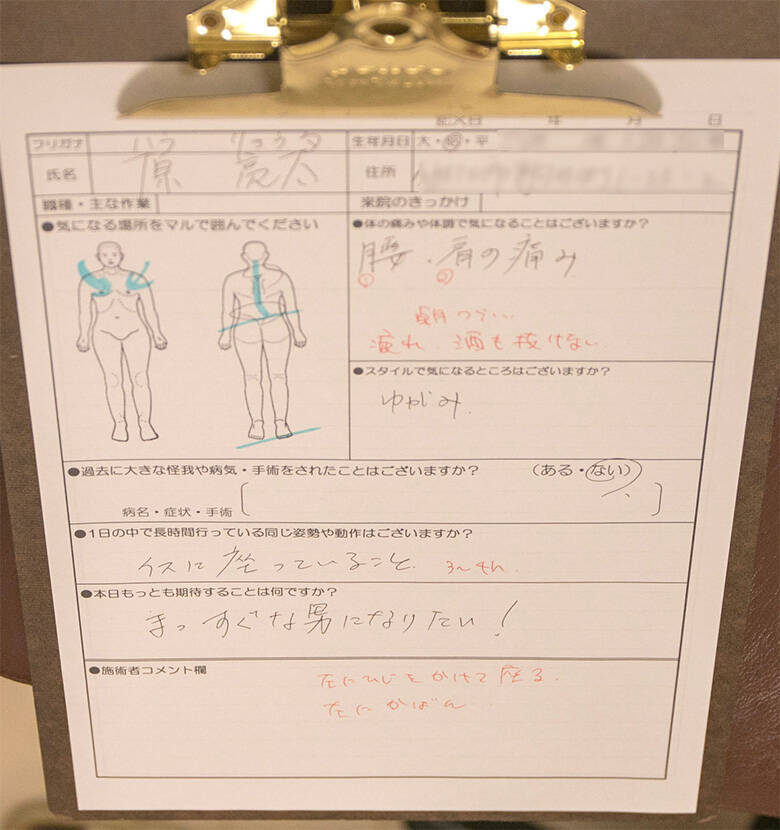 記入日 年 月 日
フリガナ ハラ リョウタ 生年月日 大・昭・平
氏名 原 亮太 住所
職種・主な作業 来院のきっかけ
●気になる場所をマルで囲んでください
●体の痛みや体調で気になることはございますか？
腰、肩の痛み
① ②
朝つらい…
疲れ、酒も抜けない
●スタイルで気になるところはございますか？
ゆがみ
●過去に大きな怪我や病気・手術をされたことはございますか？ （ある・ない）
病名・症状・手術
●1日の中で長時間行っている同じ姿勢や動作はございますか？
イスに座っていること 3〜4h
●本日もっとも期待することは何ですか？
まっすぐな男になりたい！
●施術者コメント欄
左にひじをかけて座る
左にかばん…